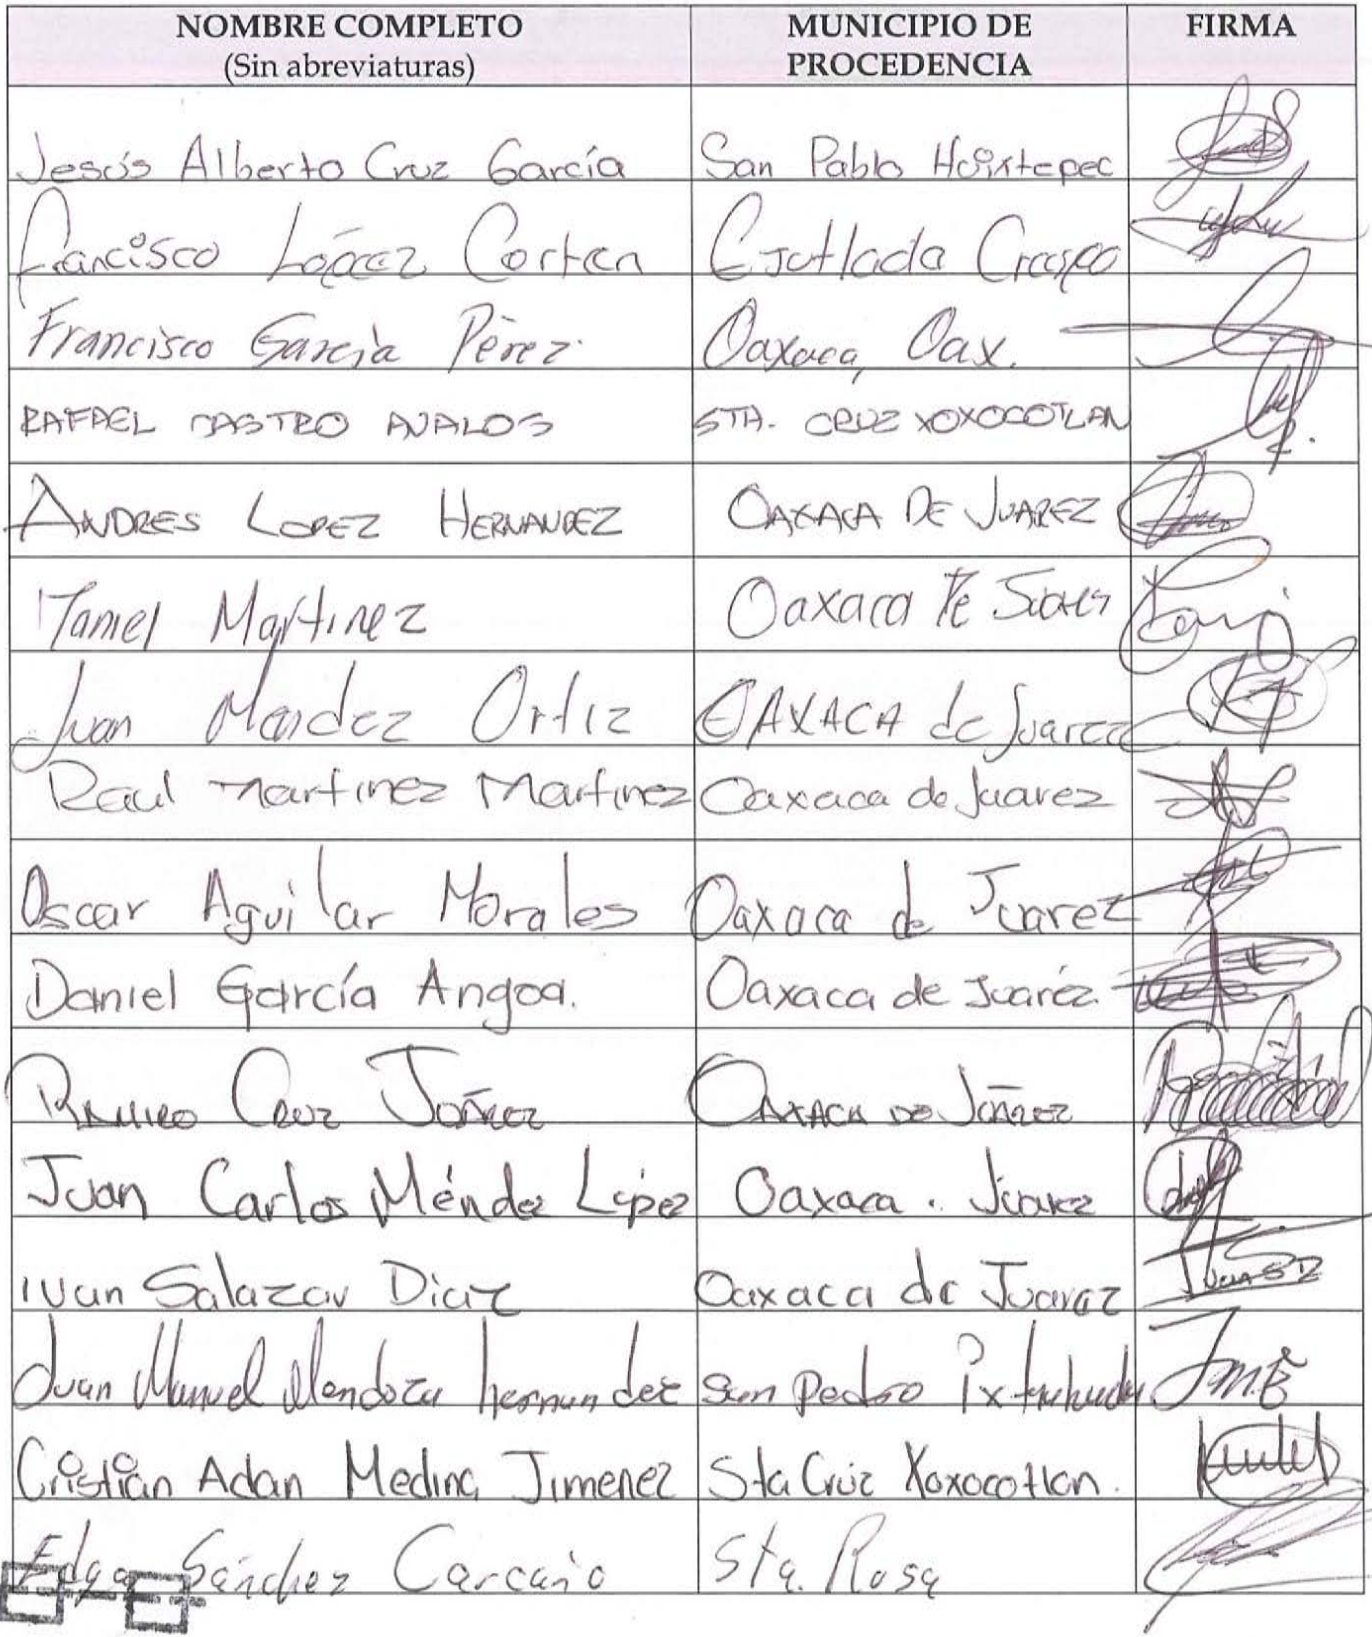 NOMBRE COMPLETO MUNICIPIO DE FIRMA
(Sin abreviaturas) PROCEDENCIA
Jesús Alberto Cruz García San Pablo Huixtepec
Francisco López Corten Ejutlada Crespo
Francisco García Pèrez Oaxaca, Oax.
RAFAEL CASTRO AVALOS STA. CRUZ XOXOCOTLAN
ANDRES LOPEZ HERNANDEZ OAXACA DE JUAREZ
Martinez Oaxaca
Juan Mendez Ortiz OAXACA de Juarez
Raul Martinez Martinez Oaxaca de Juarez
Oscar Aguilar Morales Oaxaca de Juarez
Daniel García Angoa. Oaxaca de Juaréz.
RAMIRO CRUZ OAXACA DE
Juan Carlos Méndez López Oaxaca . Juarez
Ivan Salazar Diaz Oaxaca de Juarez
Juan Manuel Mendoza hernandez San Pedro
Cristian Adan Medina Jimenez Sta Cruz Xoxocotlan.
Edgar Sánchez Carcaño Sta. Rosa